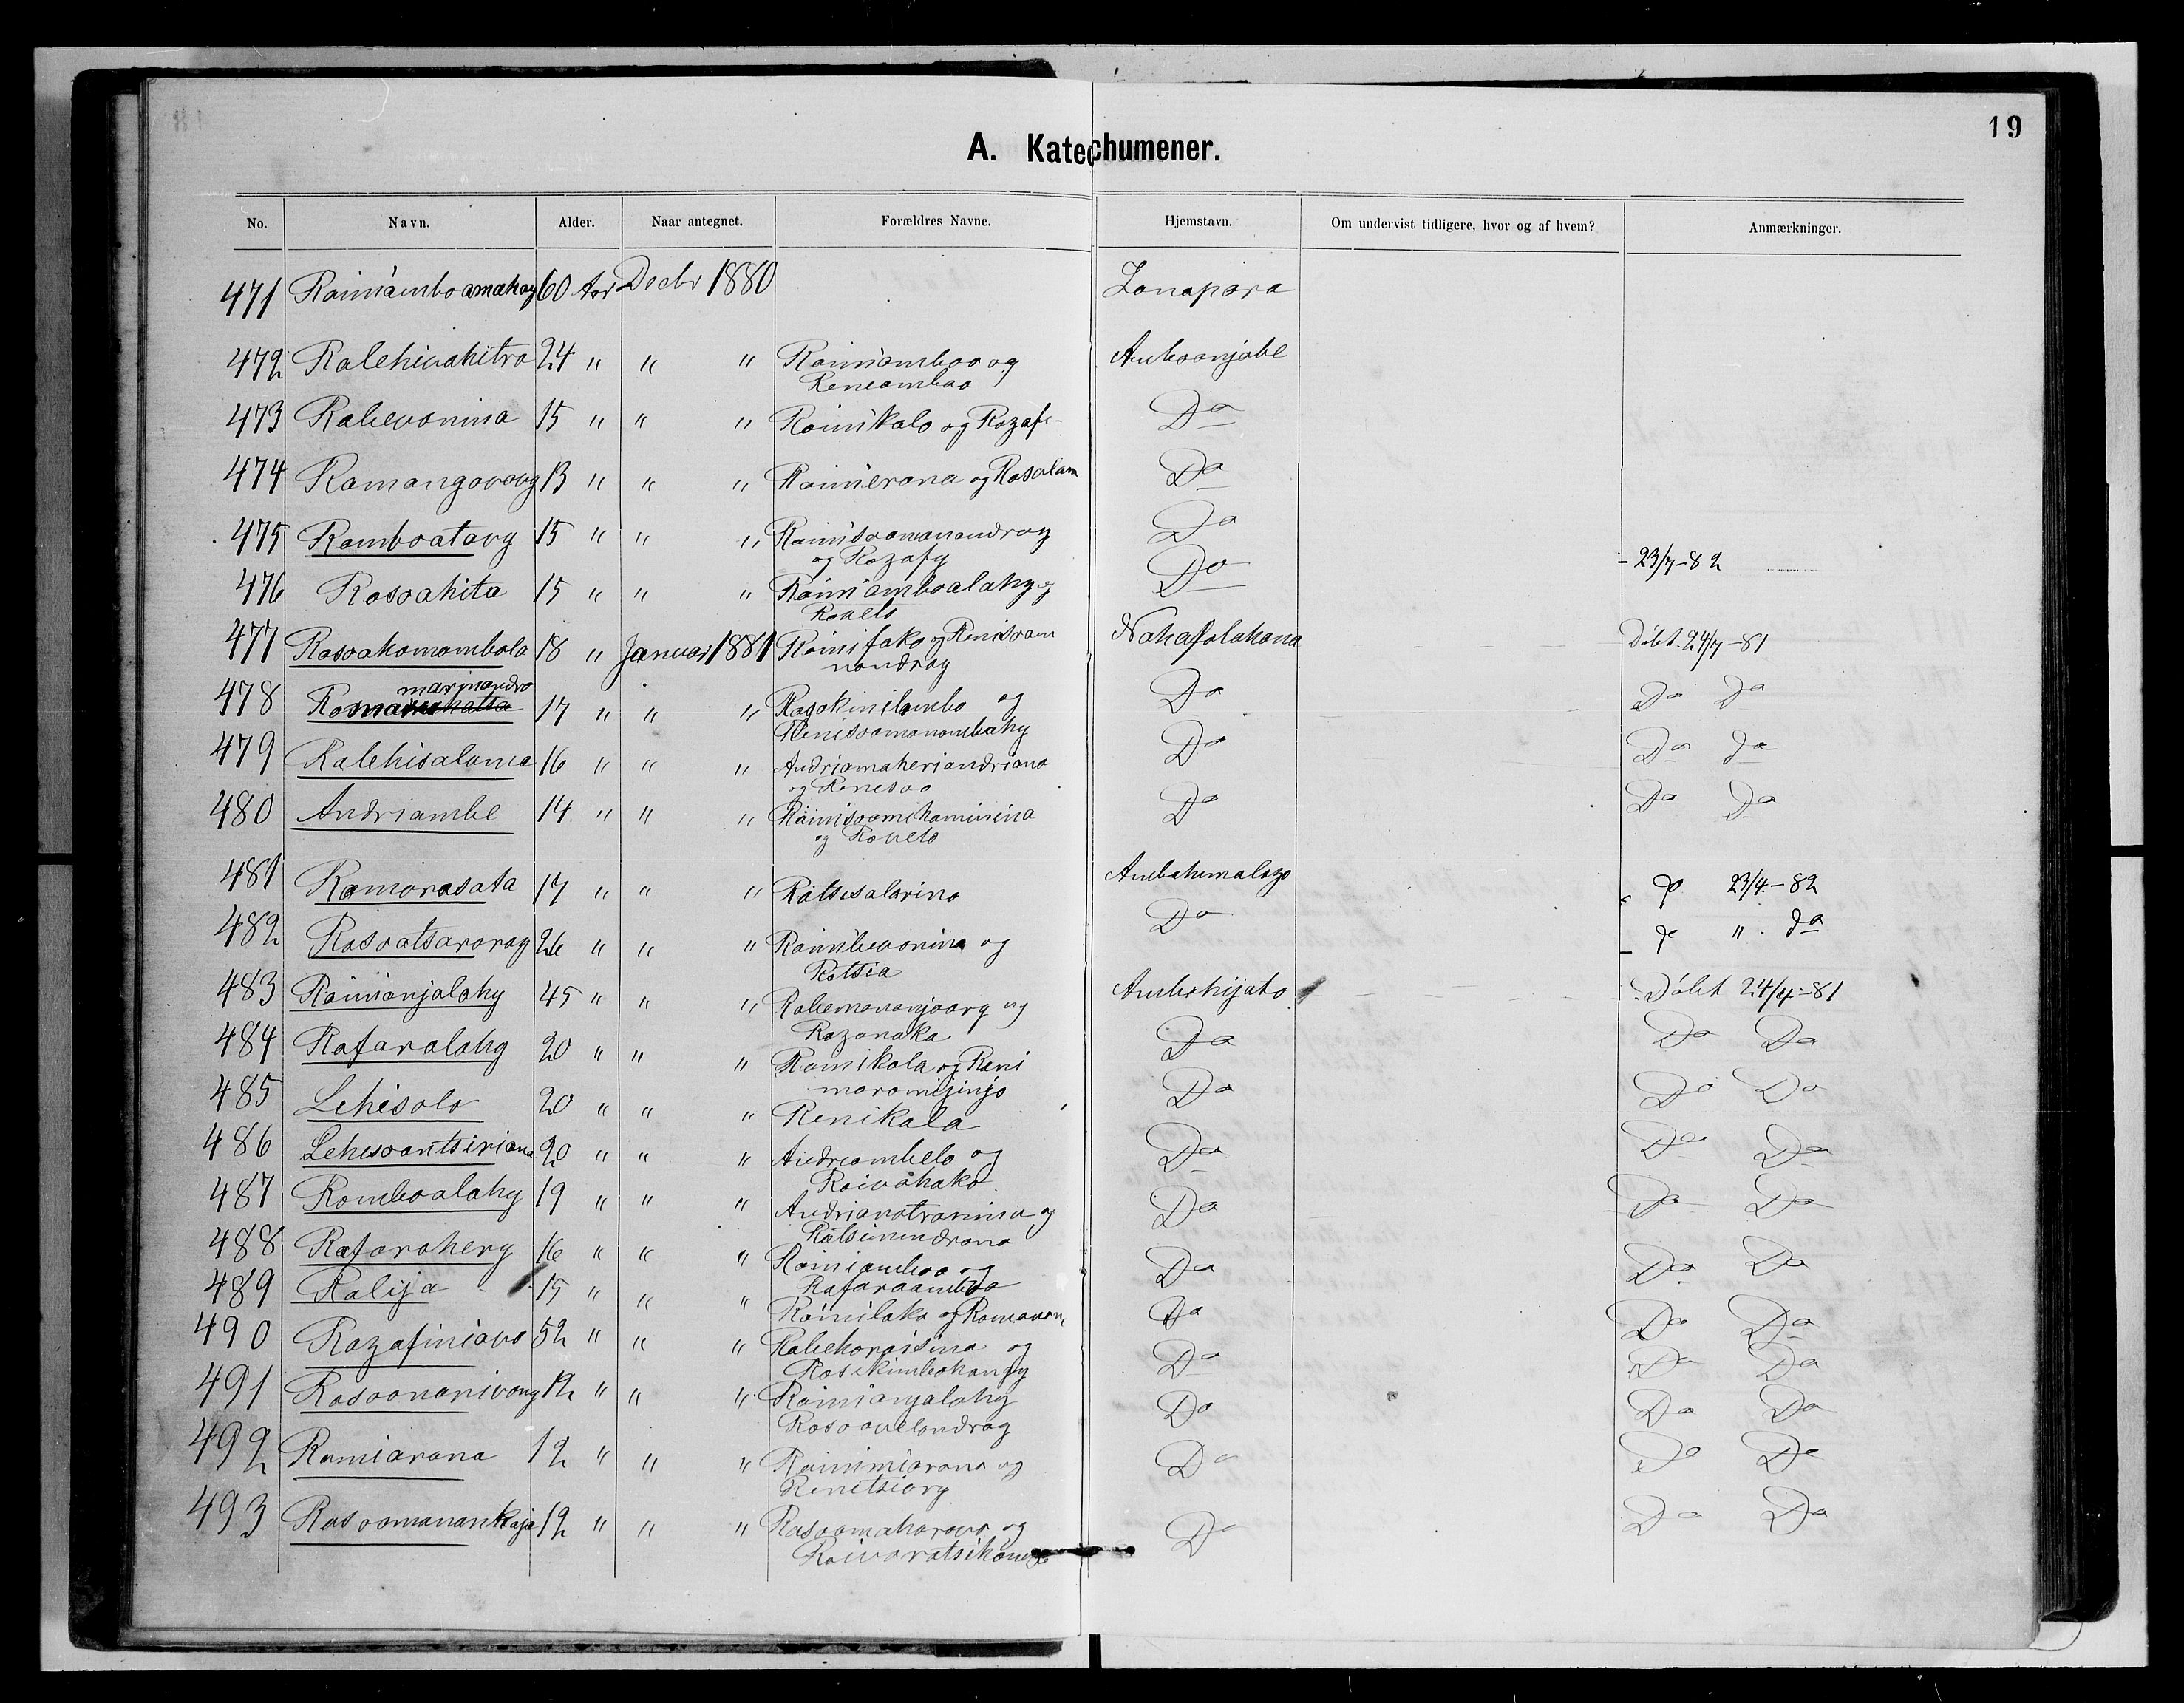 19
A. Katechumener.
No. Navn. Alder. Naar antegnet. Forældres Navne. Hjemstavn. Om undervist tidligere, hvor og af hvem? Anmærkninger.
471 Rainiamboamahay 60 Aar Decbr 1880 Zanapara
472 Ralehivahitra 24 " " " Rainiamboa og Amboanjobe
Reneamboa
473 Rabevonina 15 " " " Rainikalo og Razafi- Do
474 Ramangavavy 13 " " " Rainierana og Rasolam Do
475 Ramboatavy 15 " " " Rainisoamanandray Do
og Razafy - 23/7-82
476 Rasoahita 15 " " " Rainiamboalahy og Do
Ravelo
477 Rasoakamambola 18 " Januar 1881 Rainifako og Renisoam Nahafolahana Döbt 24/7-81
nandray
478 Ramarinandro 17 " " " Ragokinilambo og Do Do Do
Renisoamanambahy
479 Ralehisalama 16 " " " Andriamaheriandriana Do Do do
og Renesoa
480 Andriambe 14 " " " Rainisoamihaminina Do Do Do
og Ravelo
481 Ramorasata 17 " " " Ratsisalarina Ambahimalazo 23/4-82
482 Rasoatsararay 26 " " " Rainibevonina og Do " do
Ratsia
483 Rainianjalahy 45 " " " Rabemananjoary og Ambohijato Döbt 24/4-81
Razanaka
484 Rafaralahy 20 " " " Rainikala og Reni Do Do Do
maromijinjo
485 Lehisolo 20 " " " Renikala Do Do Do
486 Lehisoantsiriana 20 " " " Andriambelo og Do Do Do
Raivohako
487 Ramboalahy 19 " " " Andrianatranina og Do Do Do
Ratsimandrana
488 Rafarahery 16 " " " Rainiamboa og Do Do Do
Rafaraamboa
489 Ralija 15 " " " Rainilaka og Ramavon Do Do Do
490 Razafiniavo 52 " " " Rabehoraisina og Do Do Do
Rasikimbohangy
491 Rasoanarivony 12 " " " Rainianjalahy Do Do Do
Rasoavelondray
492 Ramiarana 12 " " " Rainimiarana og Do Do Do
Renitsiory
493 Rasoamanankaja 12 " " " Rasoamaharavo og Do Do Do